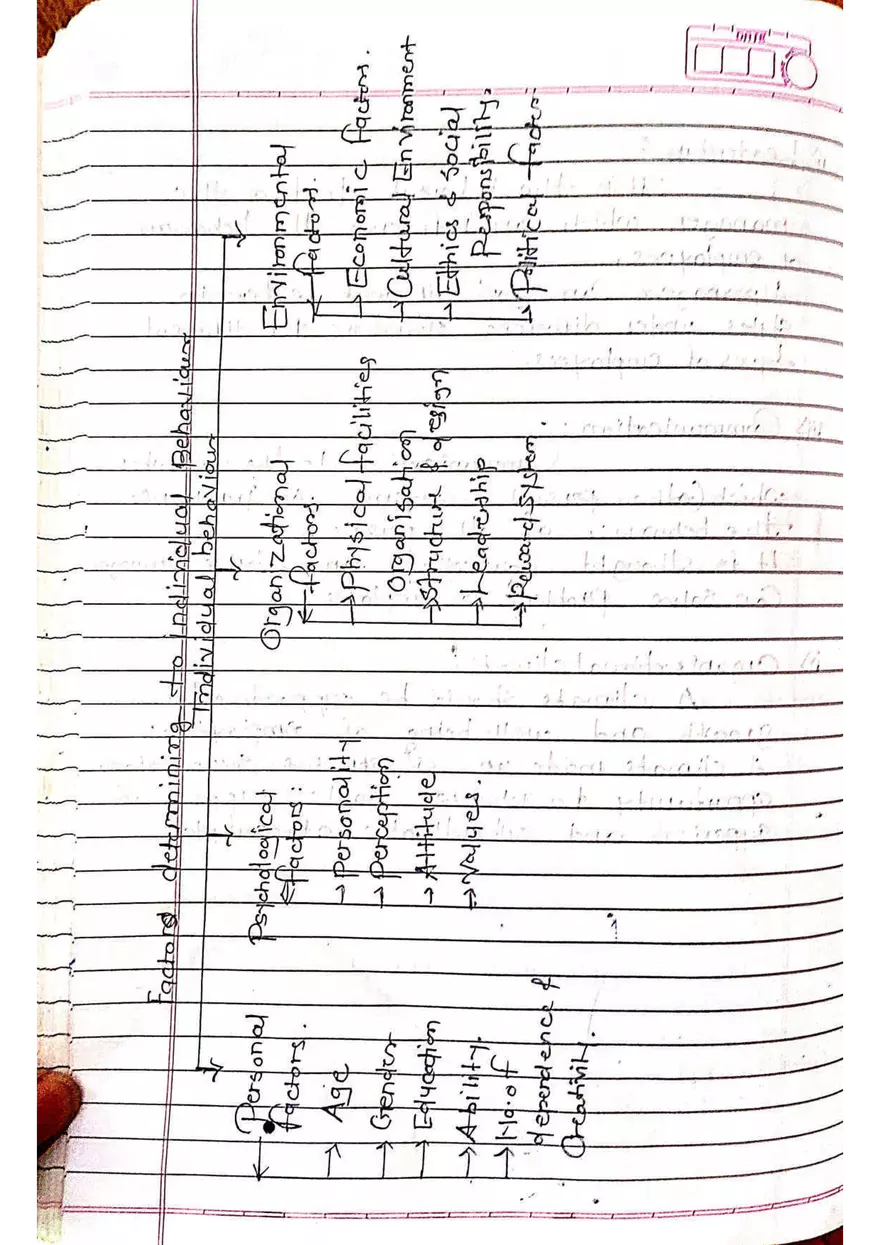 Factors determining to Individual Behaviour
Individual behaviour
Personal
factors.
Age
Gender
Education
Ability.
No. of
dependence &
Creativity.
Psychological
factors:
Personality
Perception
Attitude
Values.
Organizational
factors.
Physical facilities
Organisation
Structure & design
Leadership
Reward system.
Environmental
factors.
Economic factors.
Cultural Environment
Ethics & Social
Responsibility.
Political factor